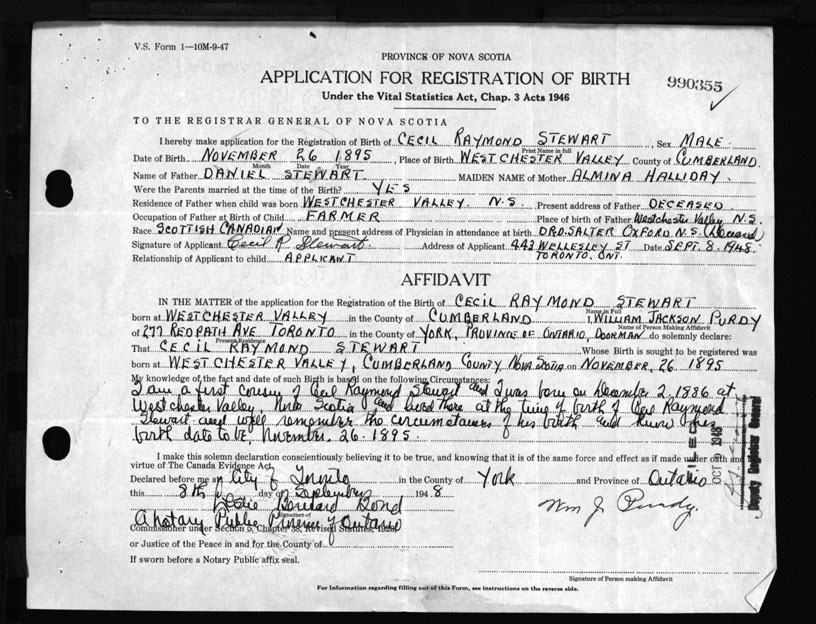 V.S. Form 1—10M-9-47
PROVINCE OF NOVA SCOTIA
APPLICATION FOR REGISTRATION OF BIRTH
990355
Under the Vital Statistics Act, Chap. 3 Acts 1946
TO THE REGISTRAR GENERAL OF NOVA SCOTIA
I hereby make application for the Registration of Birth of CECIL RAYMOND STEWART, Sex MALE.
Print Name in full
Date of Birth NOVEMBER 26 1895, Place of Birth WESTCHESTER VALLEY County of CUMBERLAND.
Month Date Year
Name of Father DANIEL STEWART. MAIDEN NAME of Mother ALMINA HALLIDAY.
Were the Parents married at the time of the Birth? YES
Residence of Father when child was born WESTCHESTER VALLEY. N.S. Present address of Father DECEASED
Occupation of Father at Birth of Child FARMER Place of birth of Father Westchester Valley N.S.
Race SCOTTISH CANADIAN Name and present address of Physician in attendance at birth DR O. SALTER OXFORD N.S. (Deceased)
Signature of Applicant Cecil R Stewart. Address of Applicant 443 WELLESLEY ST Date SEPT. 8. 1948.
TORONTO. ONT.
Relationship of Applicant to child APPLICANT
AFFIDAVIT
IN THE MATTER of the application for the Registration of the Birth of CECIL RAYMOND STEWART
Name in Full
born at WESTCHESTER VALLEY in the County of CUMBERLAND I, WILLIAM JACKSON PURDY
Name of Person Making Affidavit
of 277 REDPATH AVE TORONTO in the County of YORK, PROVINCE OF ONTARIO, DOORMAN do solemnly declare:
Present Residence
That CECIL RAYMOND STEWART Whose Birth is sought to be registered was
born at WESTCHESTER VALLEY, CUMBERLAND COUNTY, NOVA SCOTIA on NOVEMBER, 26 1895
My knowledge of the fact and date of such Birth is based on the following Circumstances:
I am a first cousin of Cecil Raymond Stewart and I was born on December 2, 1886 at
Westchester Valley, Nova Scotia and lived there at the time of birth of Cecil Raymond
Stewart and well remember the circumstances of his birth and know his
birth date to be, November, 26. 1895.
I make this solemn declaration conscientiously believing it to be true, and knowing that it is of the same force and effect as if made under oath and
virtue of The Canada Evidence Act.
Declared before me at City of Toronto in the County of York and Province of Ontario
this 8th day of September 1948
Bernard Bond
Signature of
A Notary Public Province of Ontario
Commissioner under Section 5, Chapter 38, Revised Statutes, 1923
Wm J. Purdy.
or Justice of the Peace in and for the County of
If sworn before a Notary Public affix seal.
Signature of Person making Affidavit
For Information regarding filling out of this Form, see instructions on the reverse side.
FILED
OCT 1948
Deputy Registrar General